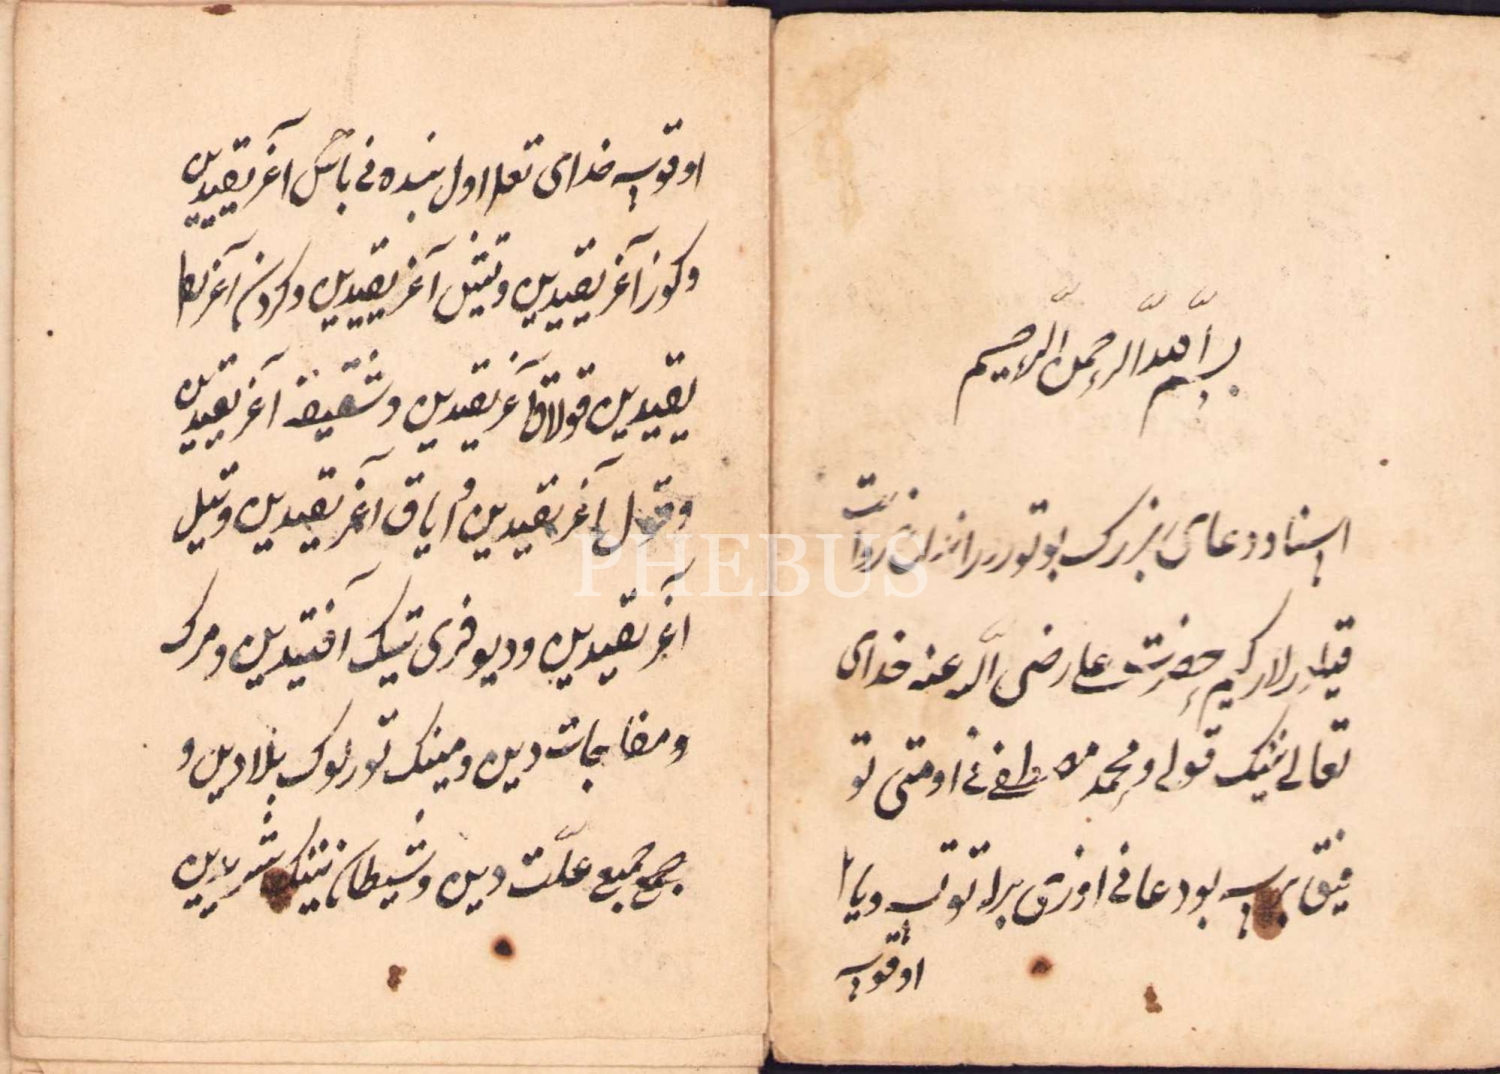 بسم الله الرحمن الرحيم
اسناد دعای بزرک بو تورر اندان روایت
قیلدیلار کیم حضرت علی رضی الله عنه خدای
تعالی نینک قولی و محمد مصطفی نی اومتی تو
فیق بیریب بو دعا نی اوزی برلا توتب و یا
اوقوب
اوقوب خدای تعا اول بنده نی باش آغریقیدین
وکوز آغریقیدین و تیش آغریقیدین و کردن آغریـ
یقیدین قولاق آغریقیدین و شقیقه آغریقیدین
و قول آغریقیدین و ایاق آغریقیدین و تیل
آغریقیدین و دیو فری نینک آفتیدین و مرک
و مفاجات دین و مینک تورلوک بلادین و
جمع جمیع علّت دین و شیطان نینک شریدین
PHEBUS